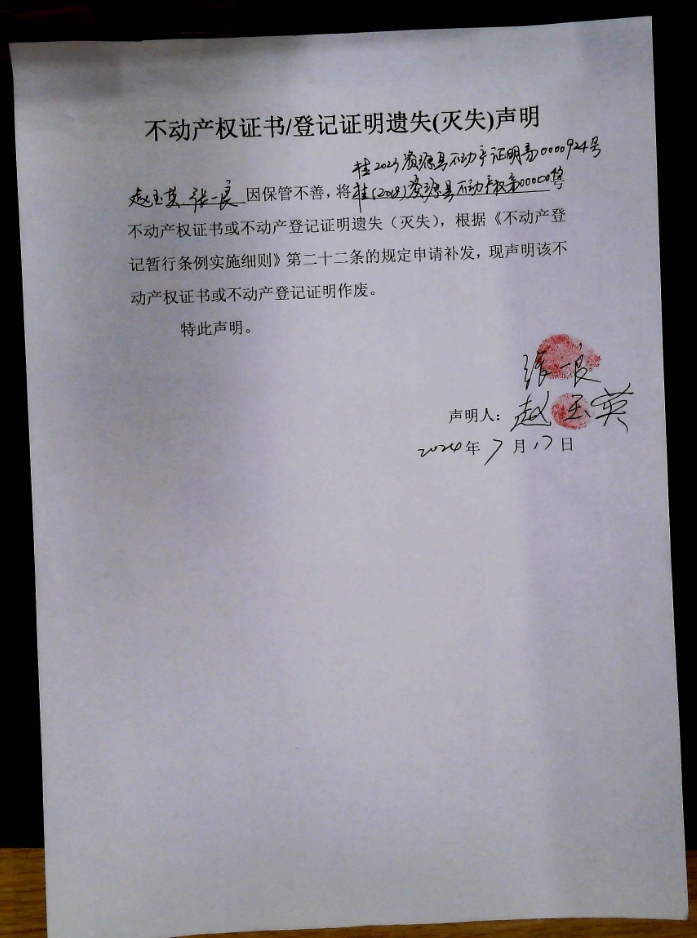 不动产权证书/登记证明遗失(灭失)声明
桂2023资源县不动产证明第0000924号
赵玉英 张一良 因保管不善,将桂(2018)资源县不动产权第
不动产权证书或不动产登记证明遗失（灭失）,根据《不动产登
记暂行条例实施细则》第二十二条的规定申请补发,现声明该不
动产权证书或不动产登记证明作废。
特此声明。
张一良
声明人：赵玉英
2024年7月17日